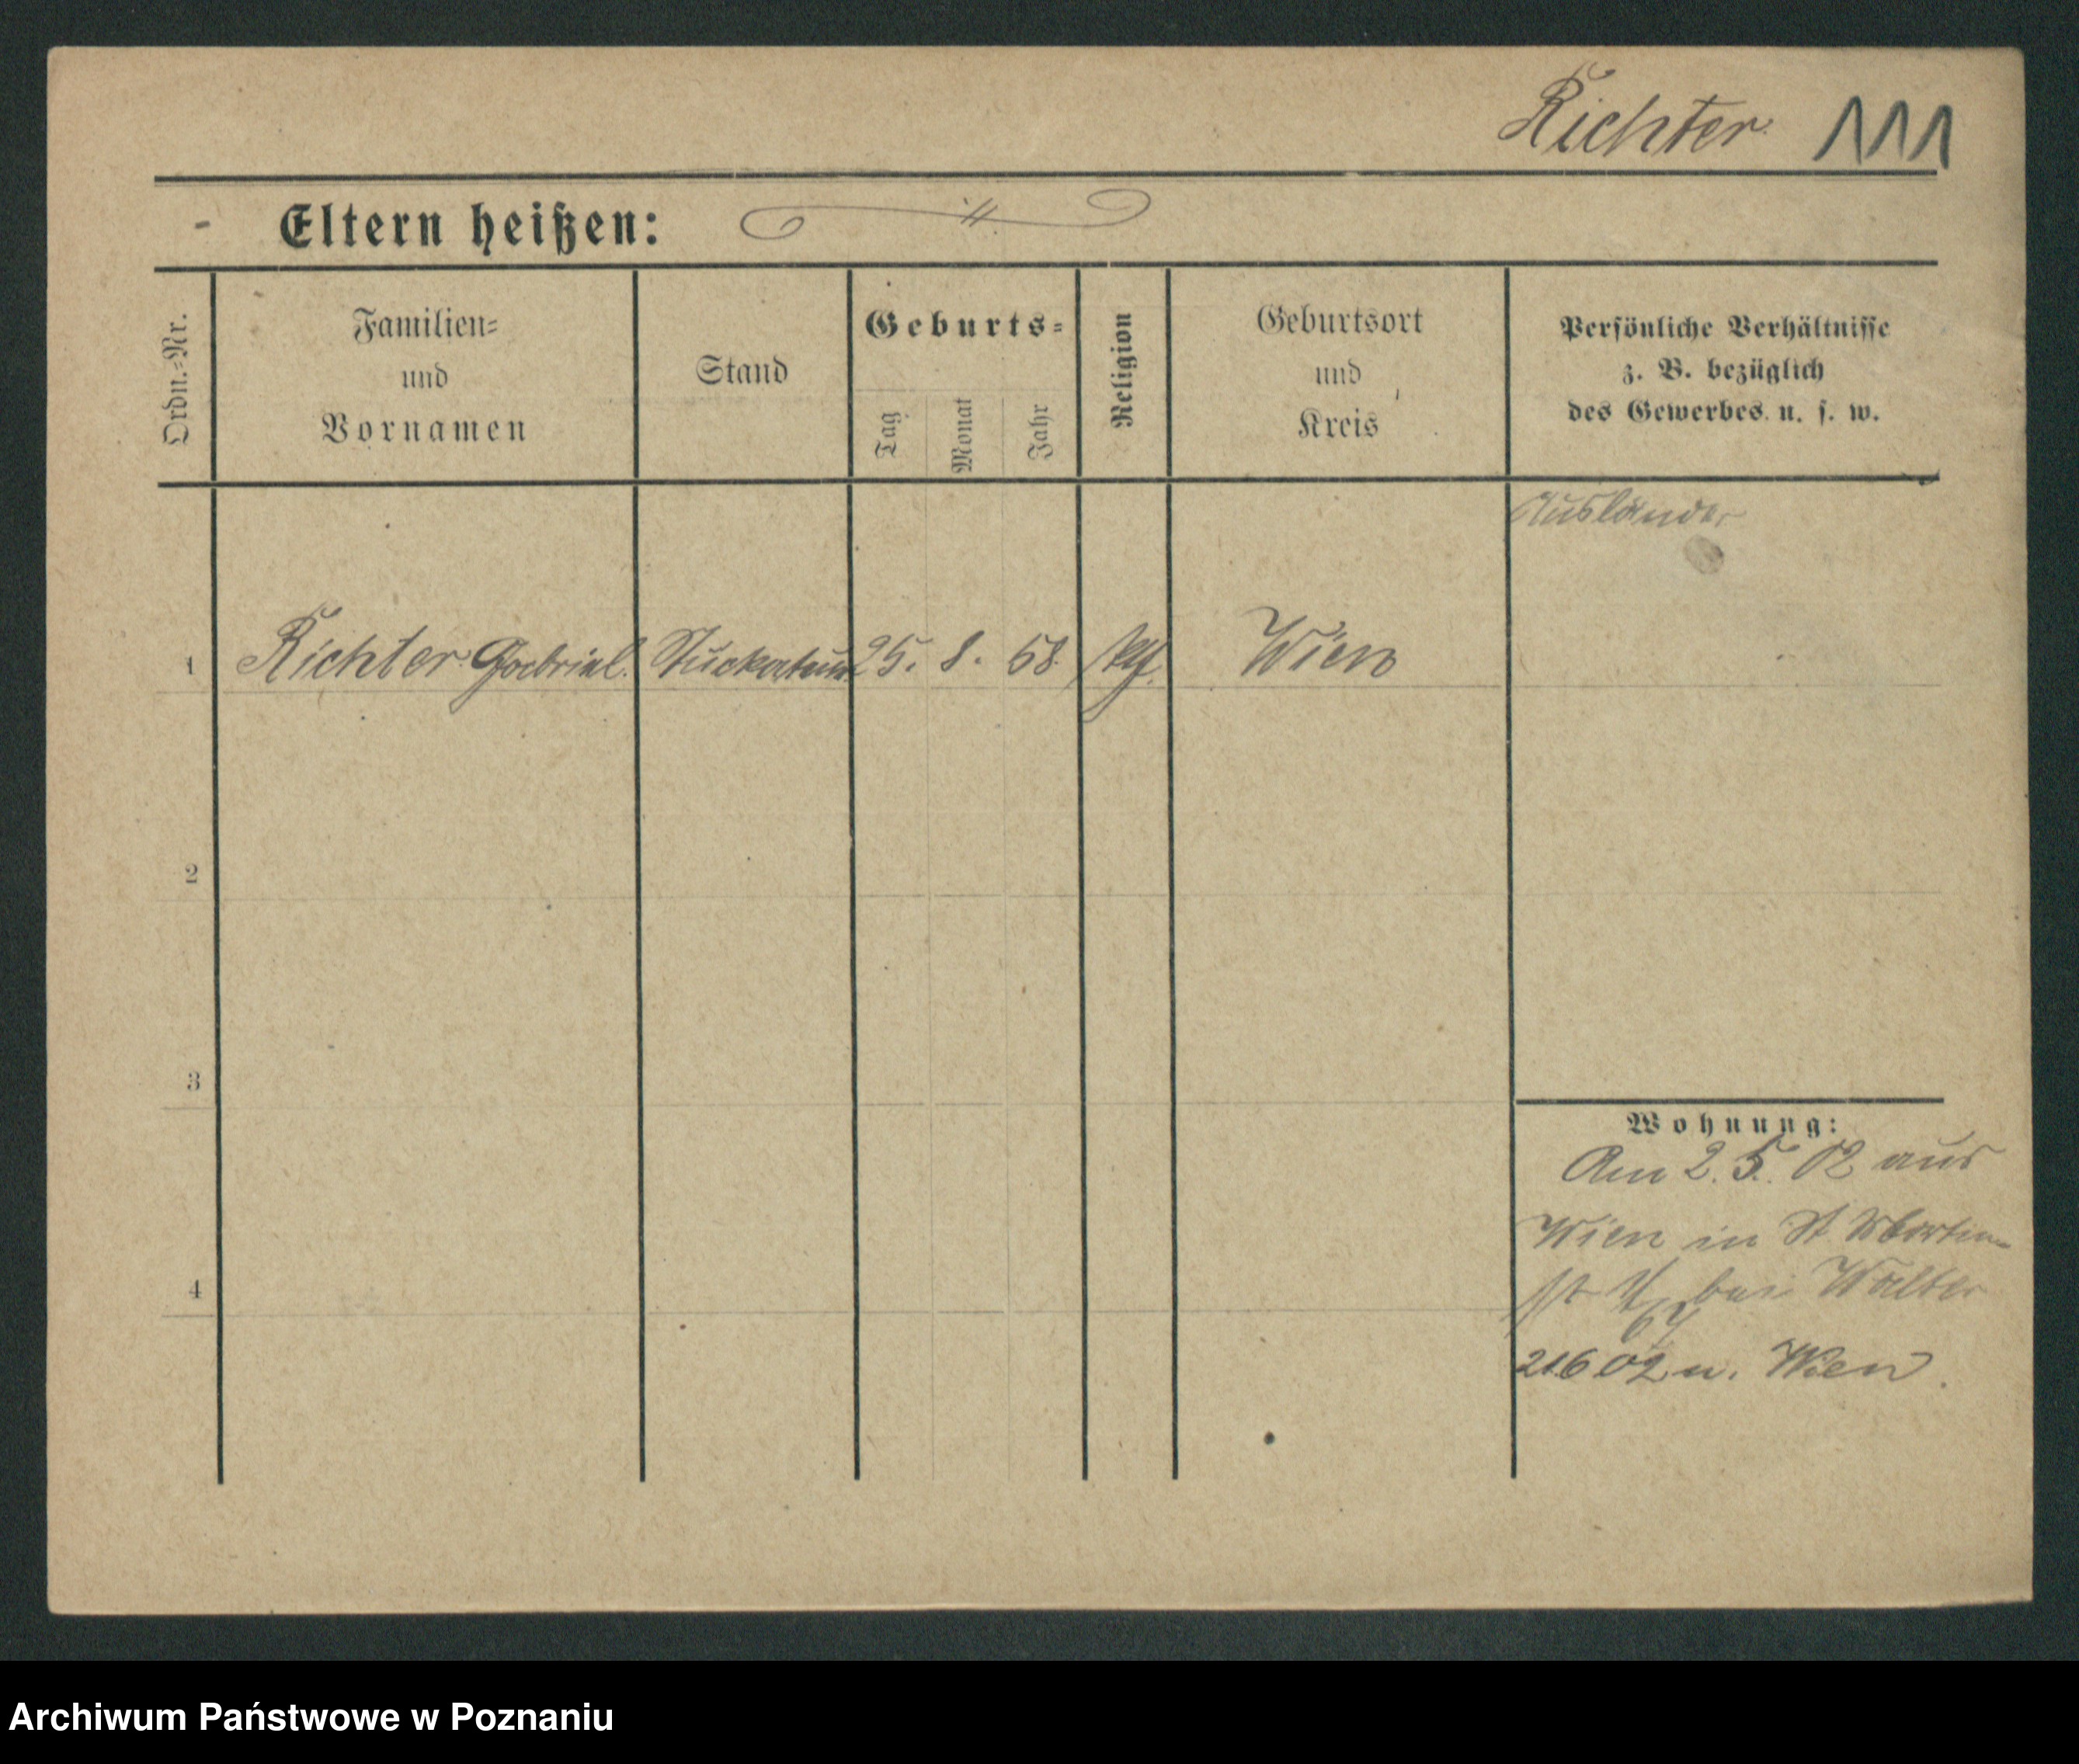 Richter 111
Eltern heißen:
Ordn.-Nr.
Familien-
und
Vornamen
Stand
Geburts-
Tag
Monat
Jahr
Religion
Geburtsort
und
Kreis
Persönliche Verhältnisse
z. B. bezüglich
des Gewerbes u. s. w.
Ausländer
1 Richter Gabriel. Stuckateur 25. 8. 58. Wien
2
3
4
Wohnung:
Am 2. 5. 02 aus
Wien in St Martin-
bei Walter
21.6 02 n. Wien.
Archiwum Państwowe w Poznaniu